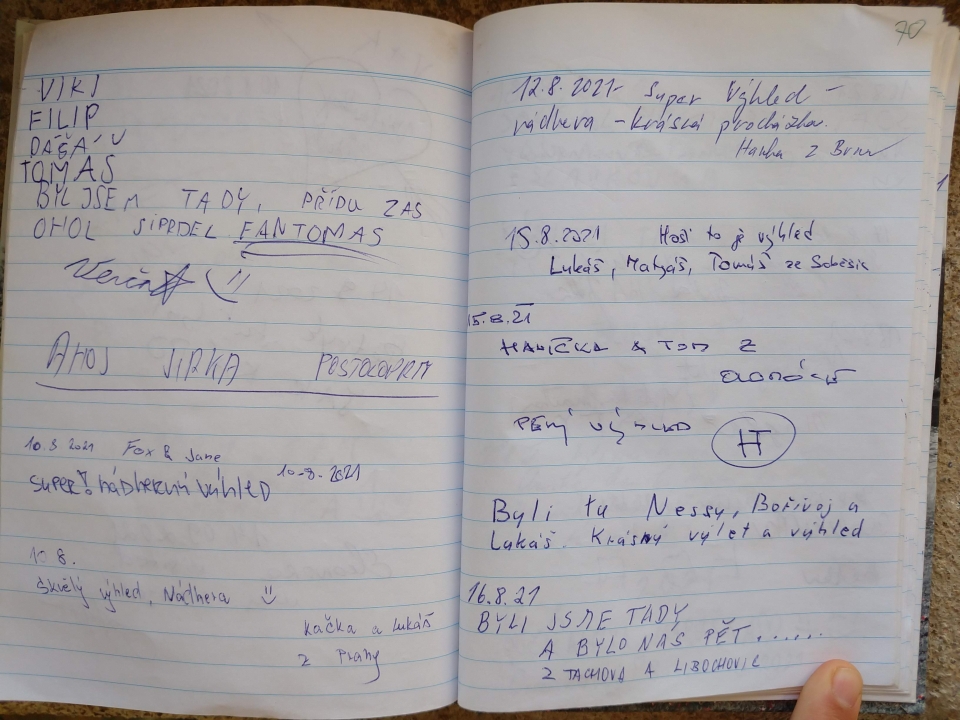 VIKI
FILIP
DÁŠA
TOMAS
BYL JSEM TADY, PŘÍDU ZAS
OHOL SIPRDEL FANTOMAS
Verča
AHOJ JIRKA
10.8 2021 Fox & Jane
SUPER! nádherný výhled 10-8.2021
10 8.
Skvělý výhled, Nádhera
Kačka a Lukáš
z Prahy
70
12.8.2021 Super Výhled -
nádhera - krásná procházka.
Hanka z Brna
15.8.2021 Hoši to je výhled
Lukáš, Matyáš, Tomáš ze Soběsic
15.8.21
HANIČKA & TOM Z
PĚKNÝ VÝHLED HT
Byli tu Nessy, Bořivoj a
Lukáš. Krásný výlet a výhled
16.8.21
BYLI JSME TADY
A BYLO NÁS PĚT......
Z TACHOVA A LIBOCHOVIC